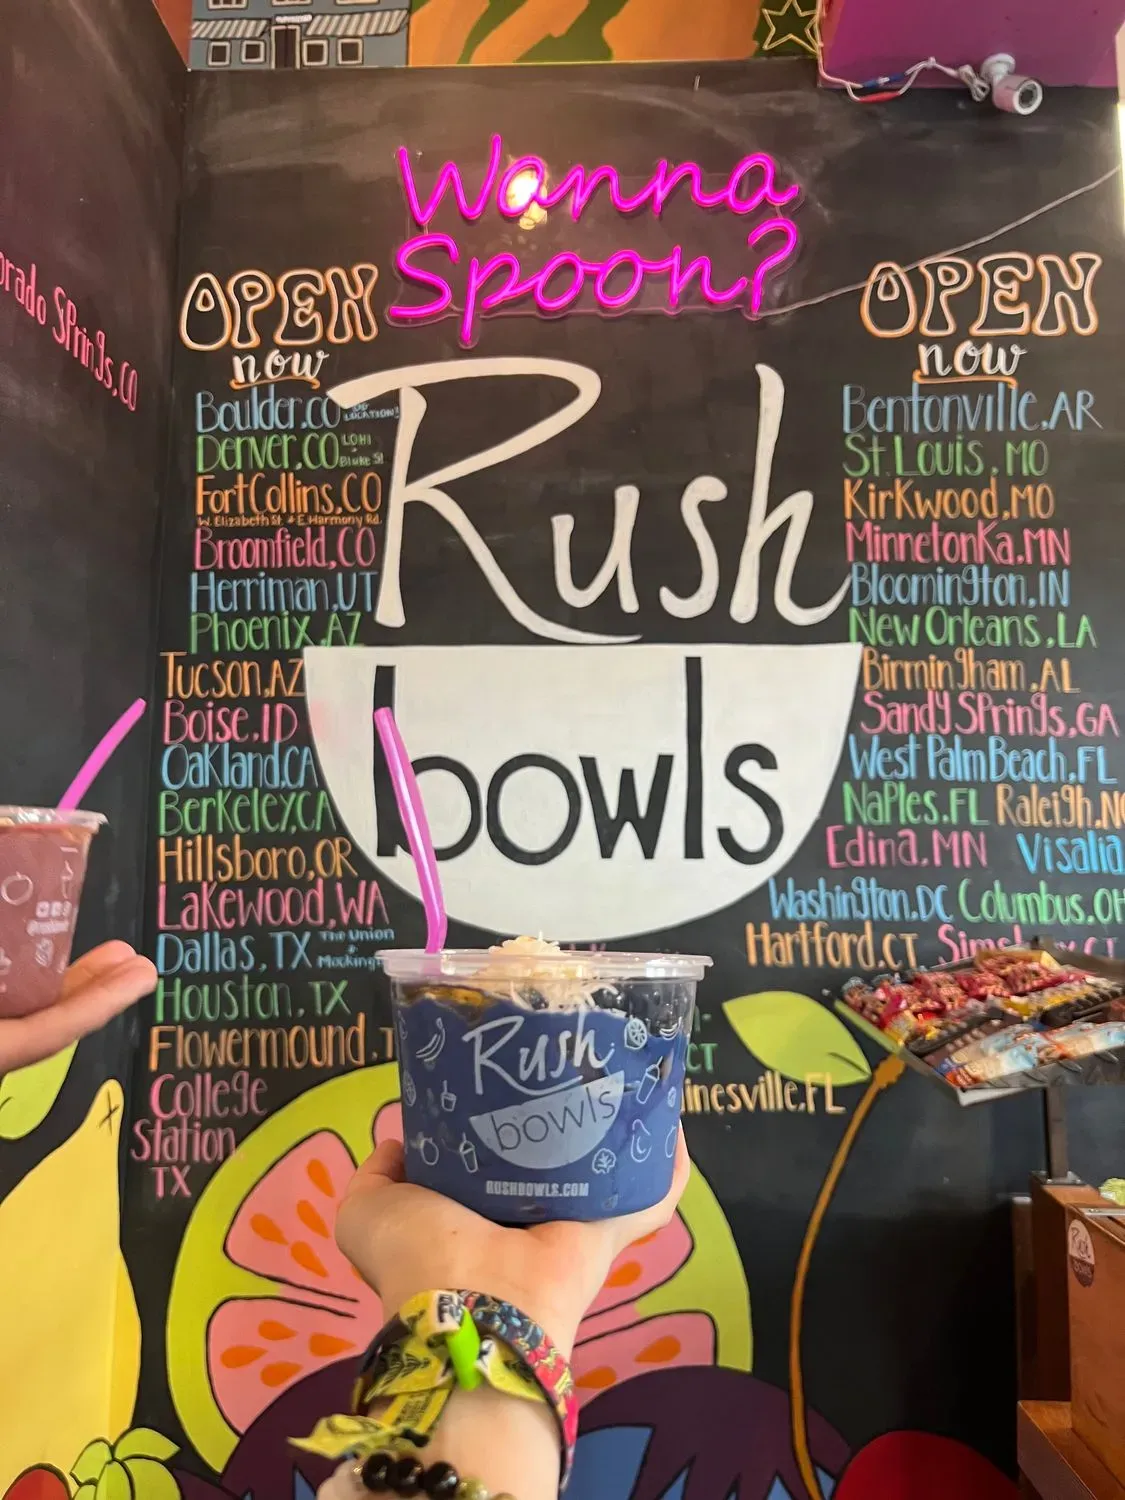 Wanna
Spoon?
orado Springs, CO
OPEN
now
Boulder, CO OG LOCATION!
Denver, CO LOHI + Blake St
Fort Collins, CO
W. Elizabeth St. + E. Harmony Rd.
Broomfield, CO
Herriman, UT
Phoenix, AZ
Tucson, AZ
Boise, ID
Oakland, CA
Berkeley, CA
Hillsboro, OR
Lakewood, WA
Dallas, TX The Union + Mocking
Houston, TX
Flowermound, T
College
Station,
TX
Rush
bowls
OPEN
now
Bentonville, AR
St. Louis, MO
Kirkwood, MO
Minnetonka, MN
Bloomington, IN
New Orleans, LA
Birmingham, AL
Sandy Springs, GA
West Palm Beach, FL
Naples, FL Raleigh, NC
Edina, MN Visalia
Washington, DC Columbus, OH
Hartford, CT
CT
inesville, FL
Rush
bowls
RUSHBOWLS.COM
Rush